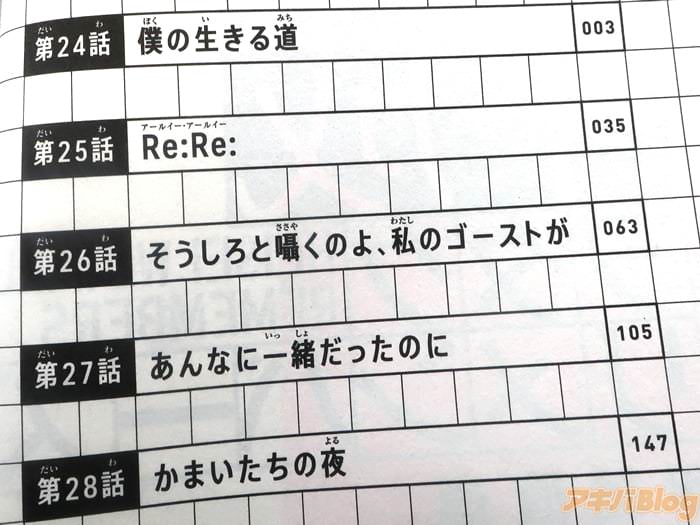 第24話 僕の生きる道 003
第25話 Re:Re: 035
第26話 そうしろと囁くのよ、私のゴーストが 063
第27話 あんなに一緒だったのに 105
第28話 かまいたちの夜 147
アキバBlog